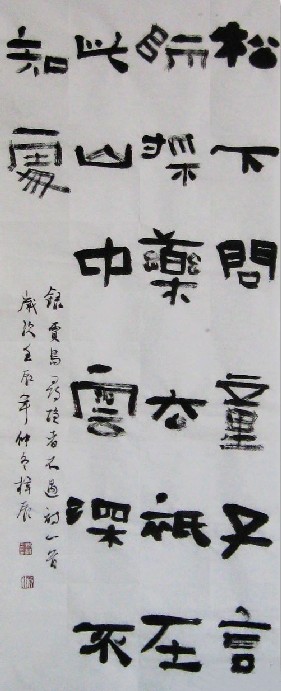 松下問童子言
師採藥去祇在
此山中雲深不
知處
錄賈島尋隱者不遇詩一首
歲次壬辰年仲冬